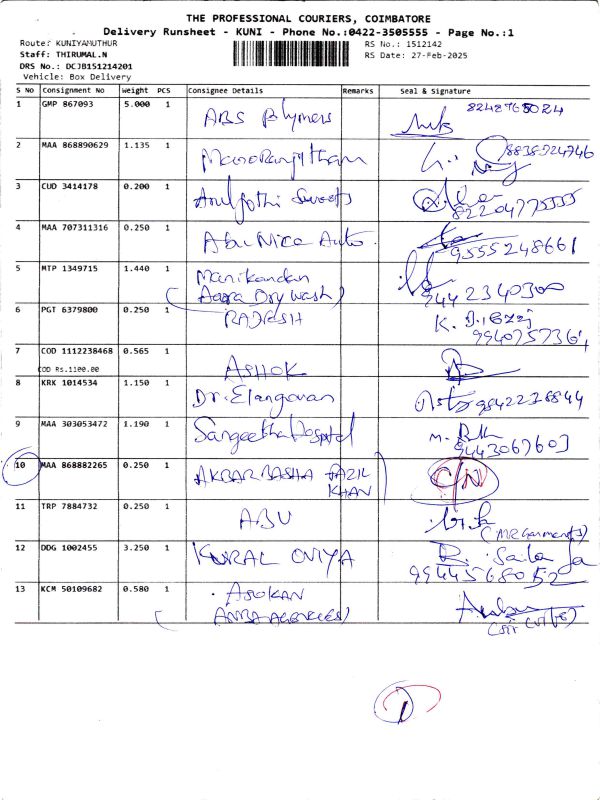 THE PROFESSIONAL COURIERS, COIMBATORE
Delivery Runsheet - KUNI - Phone No.:0422-3505555 - Page No.:1
Route: KUNIYAMUTHUR
RS No.: 1512142
Staff: THIRUMAL.N
RS Date: 27-Feb-2025
DRS No.: DCJB151214201
Vehicle: Box Delivery
S No Consignment No Weight PCS Consignee Details Remarks Seal & Signature
1 GMP 867093 5.000 1 ABS Polymers 8248765024
2 MAA 868890629 1.135 1 Manoranjitham 8838524746
3 CUD 3414178 0.200 1 Aruljothi Sweets 82204775555
4 MAA 707311316 0.250 1 Abu Nice Auto 9555248661
5 MTP 1349715 1.440 1 Manikandan
(Aara Dry wash) 9442340300
6 PGT 6379800 0.250 1 RAJESH K.
7 COD 1112238468 0.565 1 ASHOK
COD Rs.1100.00
8 KRK 1014534 1.150 1 Dr. Elangovan 9842278844
9 MAA 303053472 1.190 1 Sangeetha Hospital M.
9443067603
10 MAA 868882265 0.250 1 AKBAR BASHA FAZIL
KHAN C/N
11 TRP 7884732 0.250 1 ABU
(MR Garments)
12 DDG 1002455 3.250 1 KURAL OVIYA R.
9944568052
13 KCM 50109682 0.580 1 ASOKAN
1